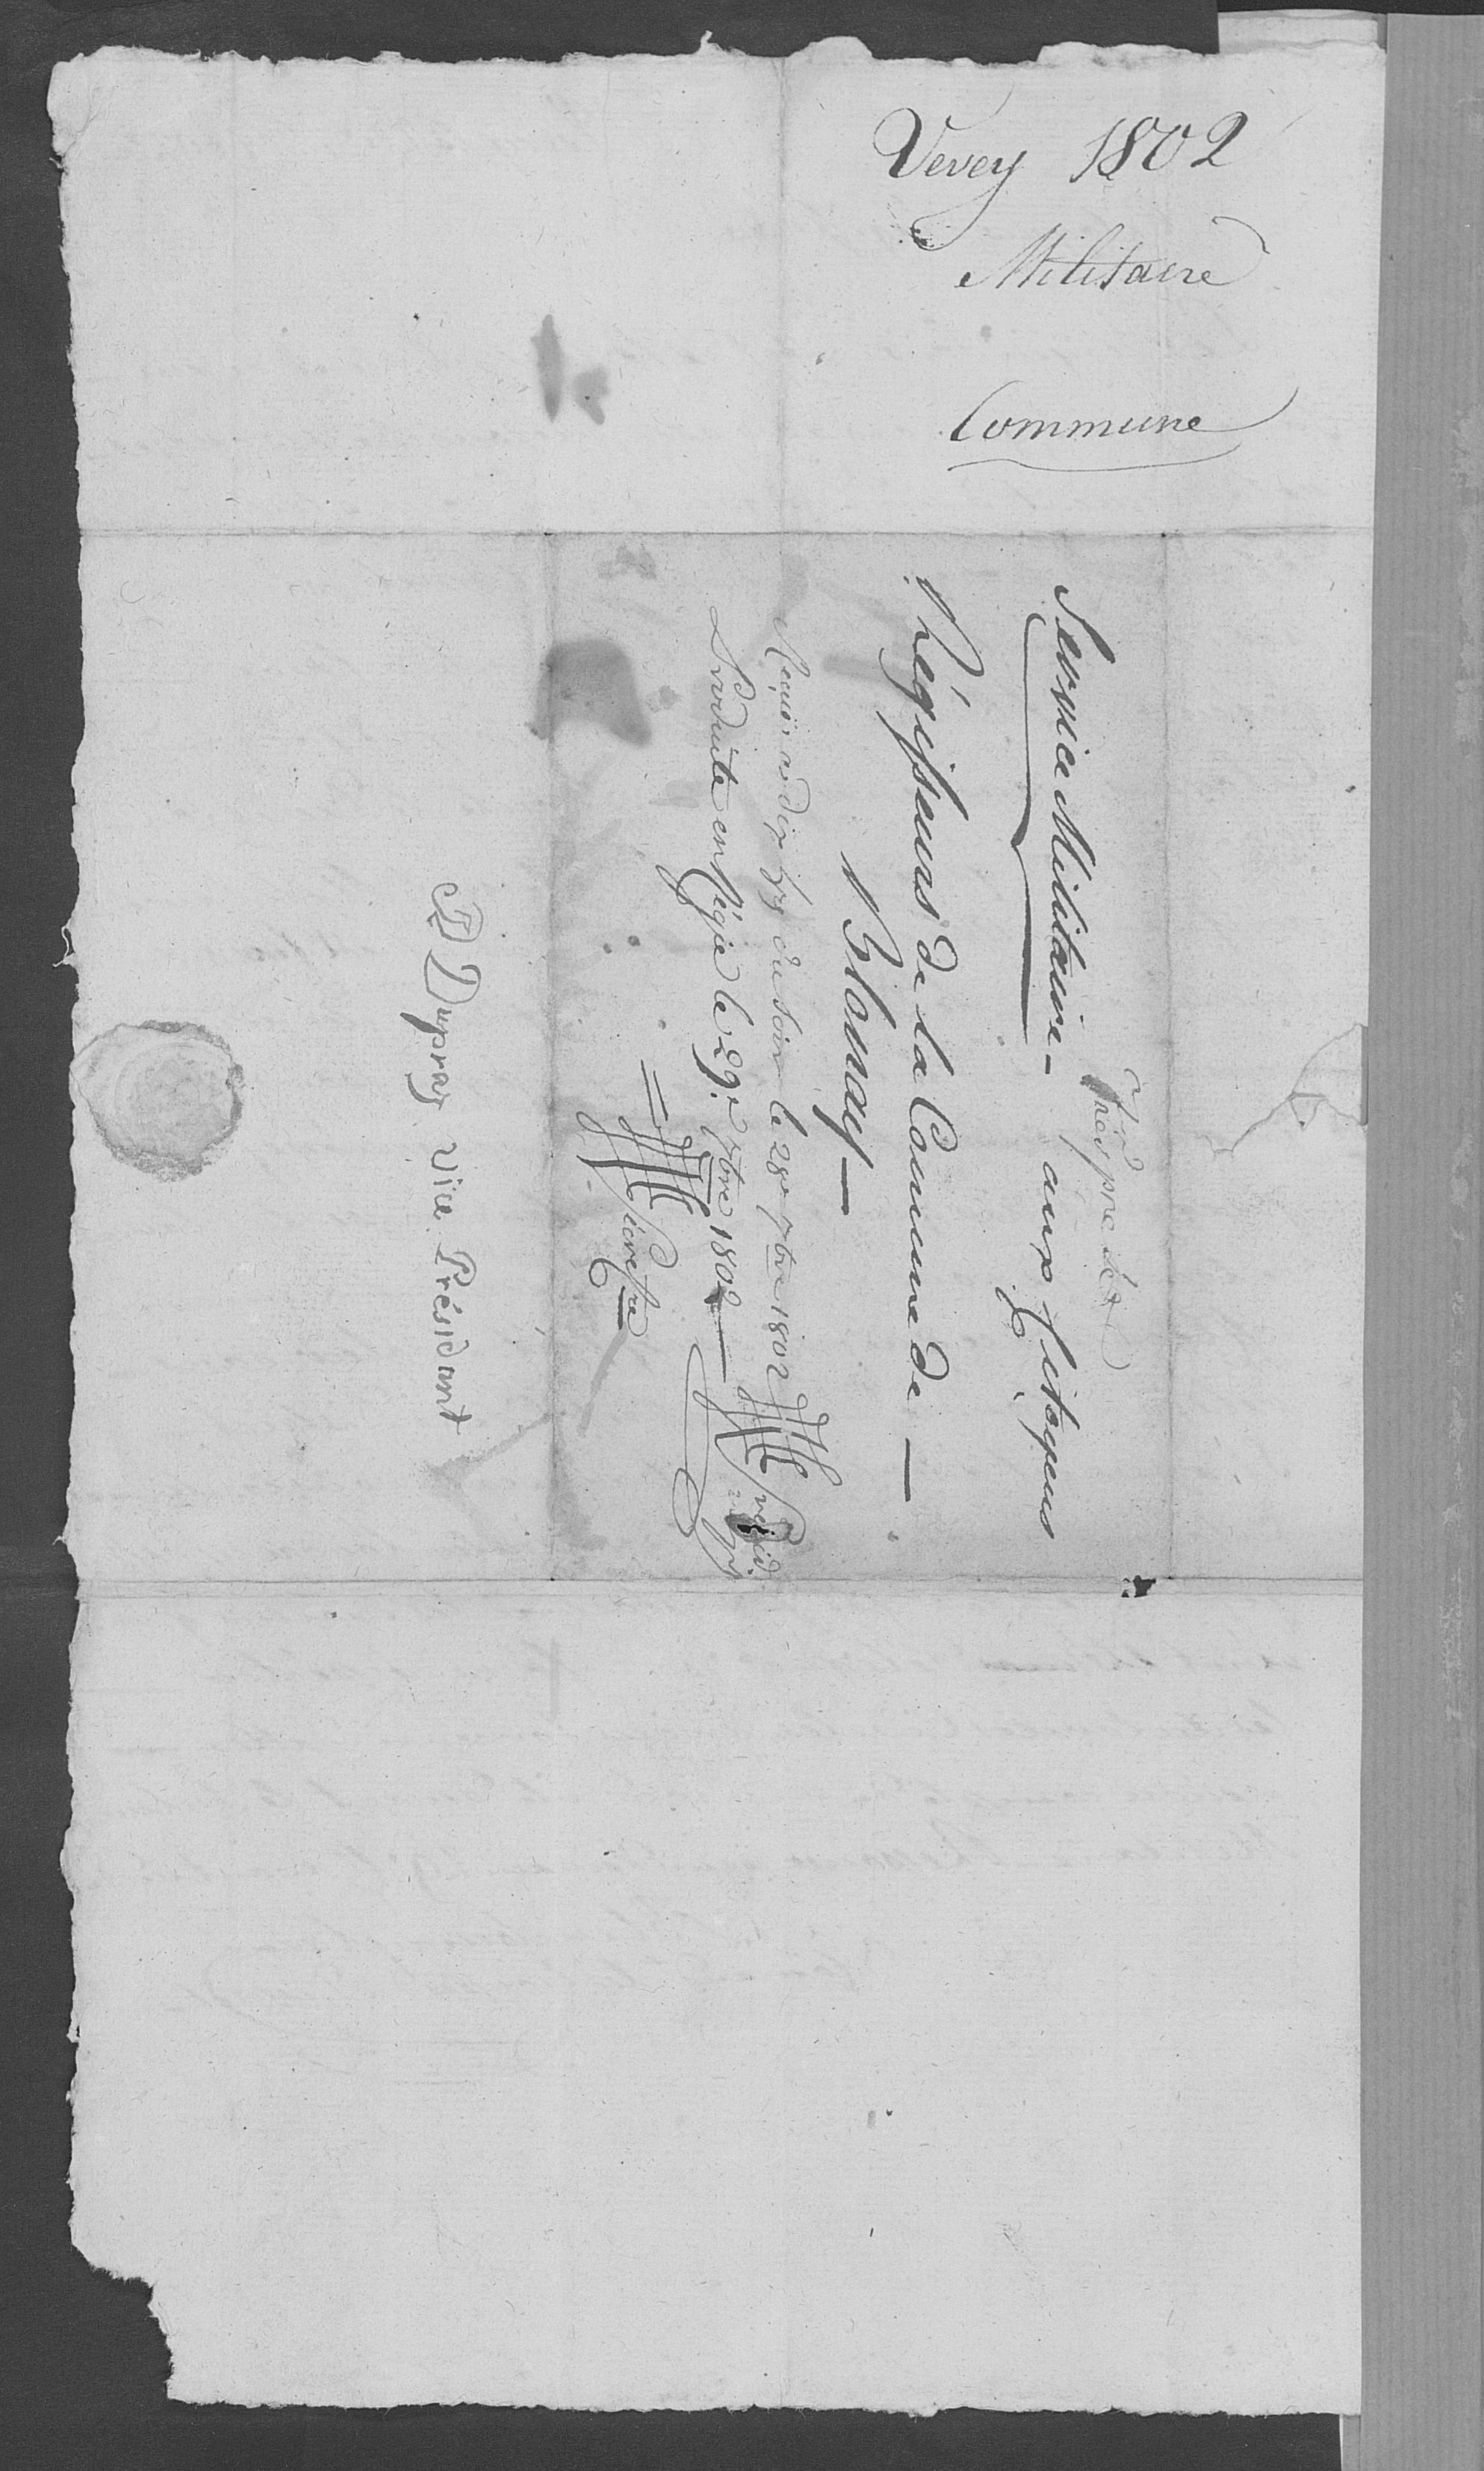 Vevey 1802
Militaire
Commune
Très pressée
Service Militaire - aux Citoyens
Régisseurs de la Commune de —
Blonay —
Reçue à dix h.s du soir le 28e 7bre 1802
Produite en Régie le 29.e 7bre 1802 —
D Dupraz vice Présidant